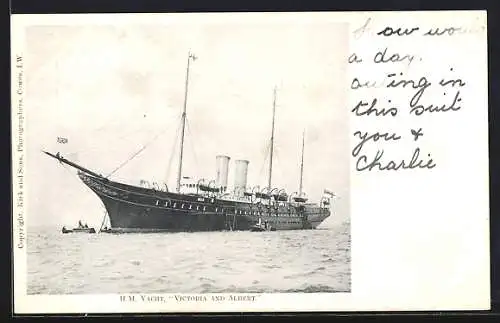 How would
a day.
outing in
this suit
you &
Charlie
Copyright. Kirk and Sons, Photographers, Cowes, I.W
H.M. Yacht, "Victoria and Albert."